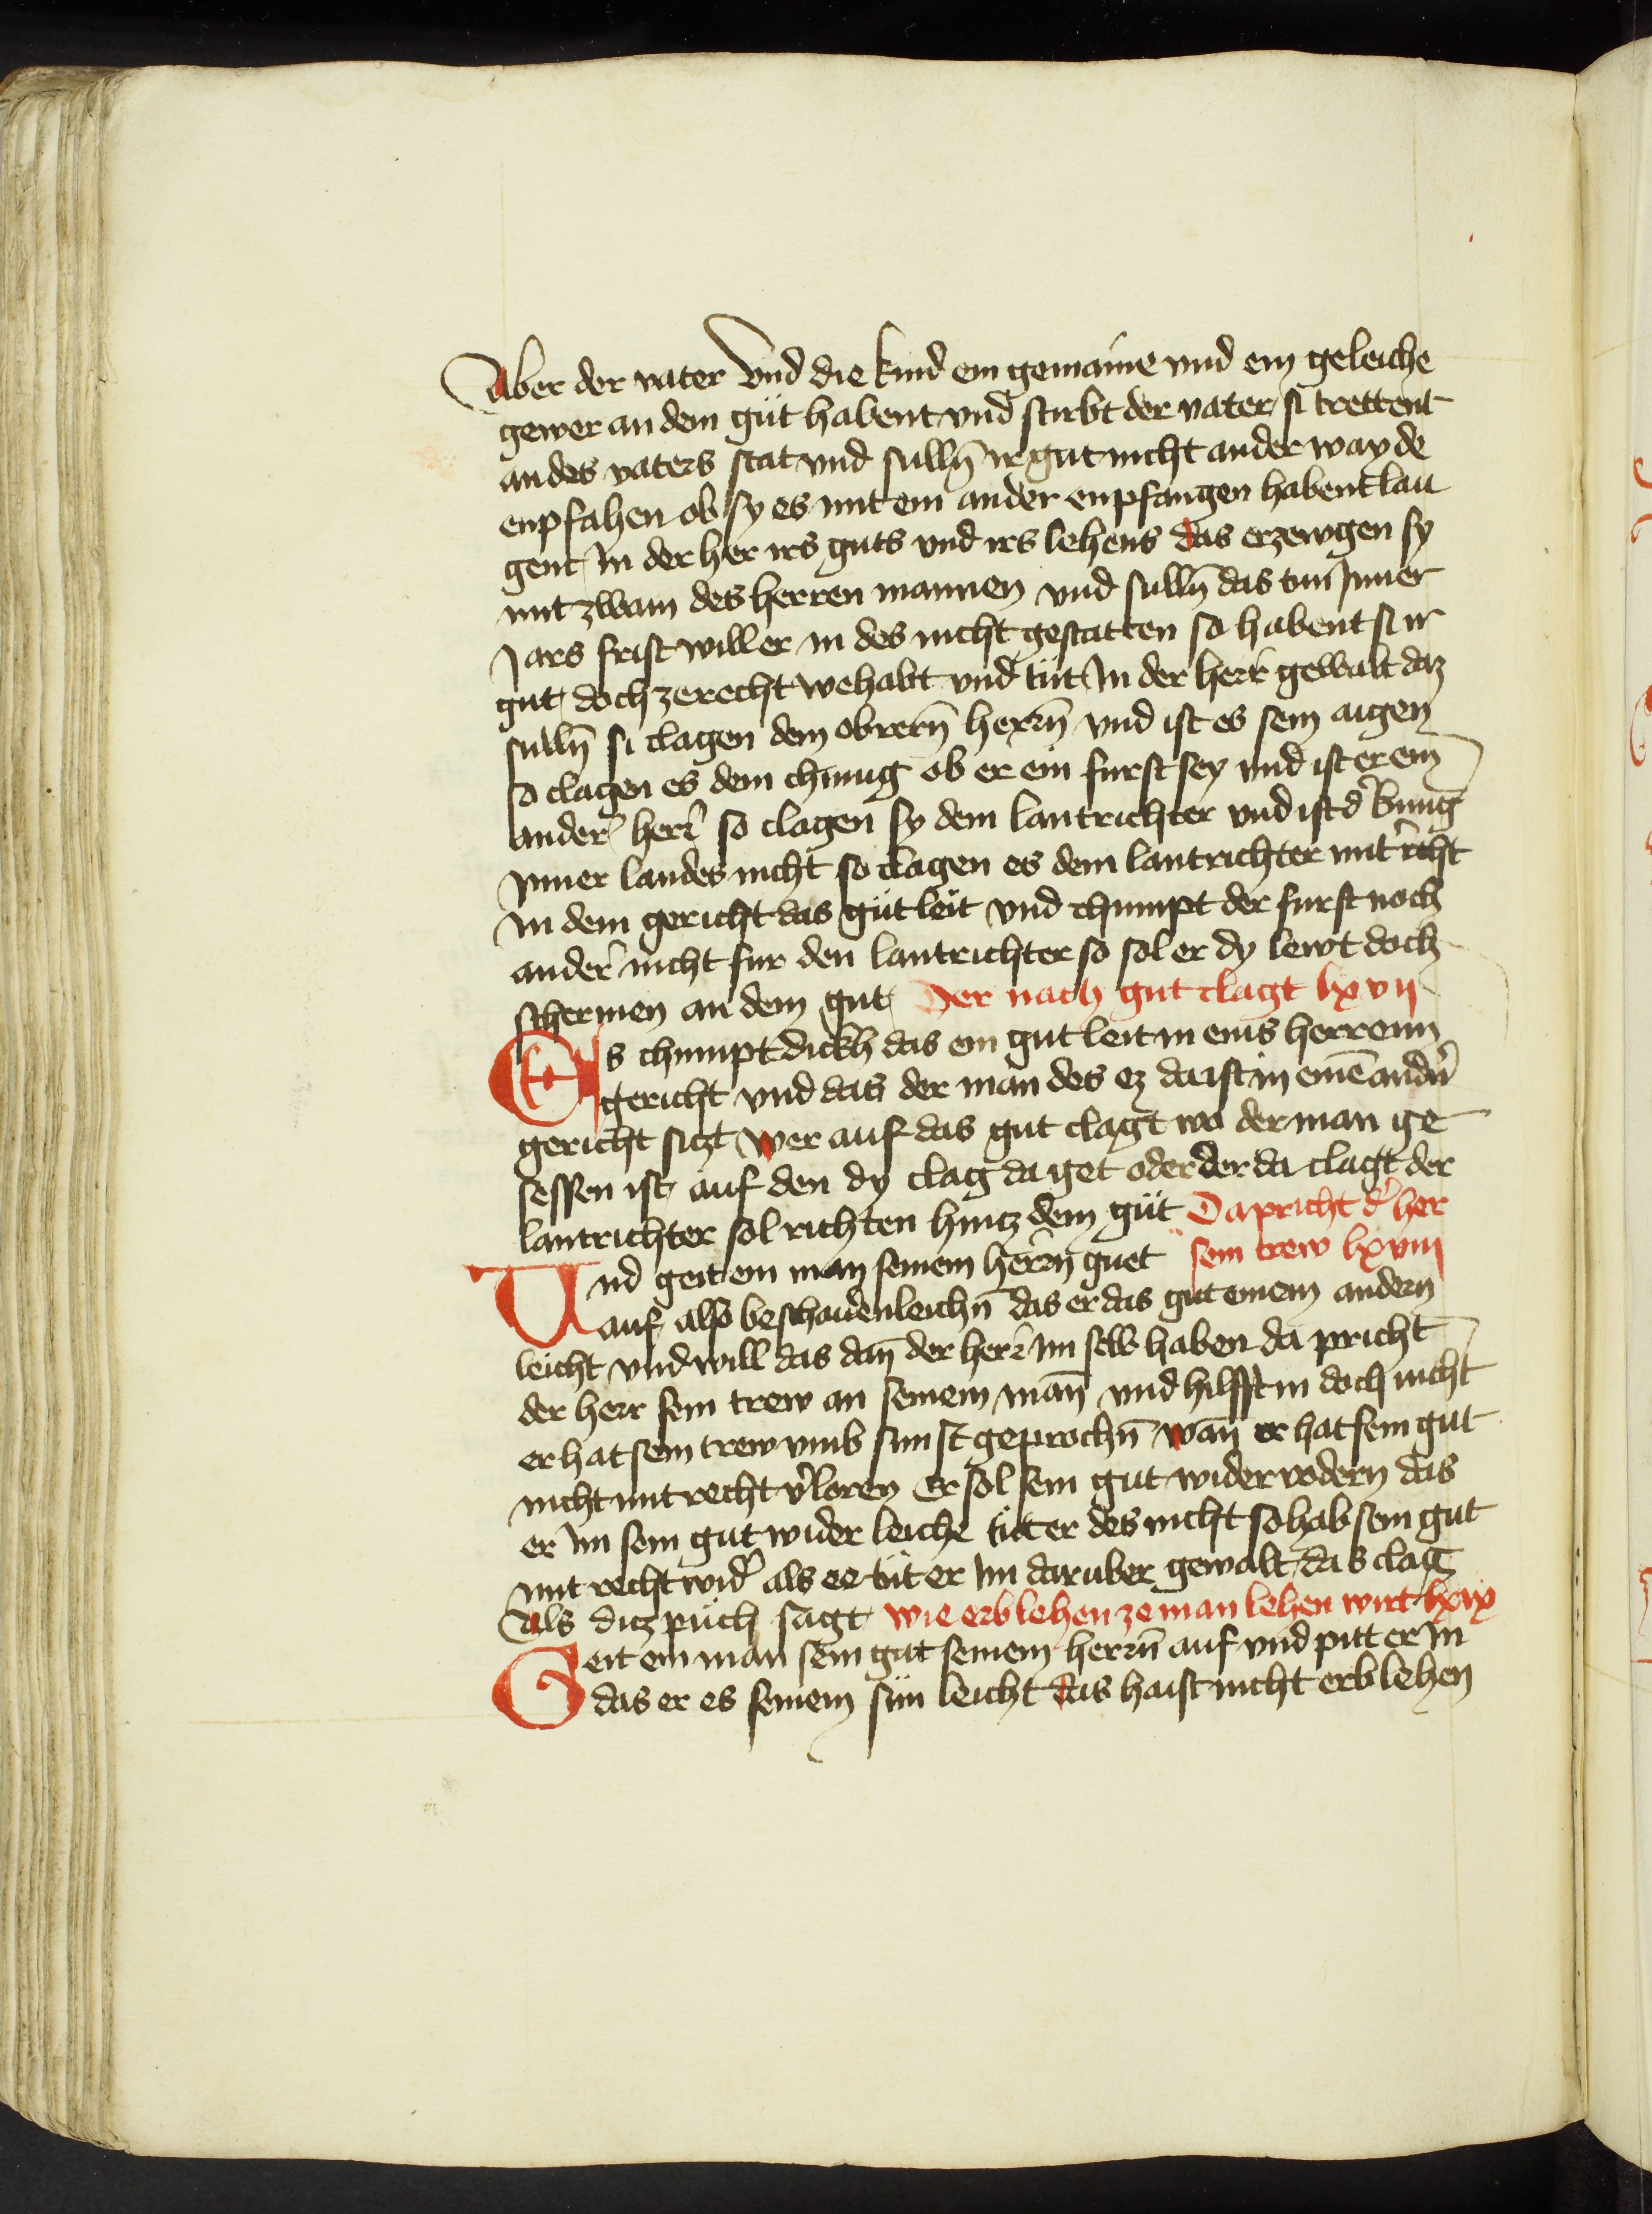 Aber der vater vnd die kind ein gemaine vnd ein geleiche
gewer an dem güt habent vnd stirbt der vater si trettent
an des vaters stat vnd sulln̄ ir gut nicht ander wayde
enpfahen ob sy es mit ein ander enpfangen habent lau
gent In der her irs guts vnd irs lehens das erzewgen sy
mit zwain des herren mannen vnd sulln̄ das tun Inner
Jars frist will er in des nicht gestatten so habent si ir
gut doch ze recht wehabt vnd tüt In der herr gewalt daz
sulln̄ si clagen dem obrern̄ herrn̄ vnd ist es sein aigen
so clagen es dem chunig ob er ein furst sey vnd ist er ein
ander herr so clagen sy dem lantrichter vnd ist d' kunig
Inner landes nicht so clagen es dem lantrichter mit r'cht
In dem gericht das güt leit vnd chumpt der furst noch
ander nicht fur den lantrichter so sol er dy lewt doch
schermen an dem gut Der nach gut clagt lxvij
Es chumpt dickh das ein gut leit in eins herrenn
gericht vnd das der man des ez da ist in eine͂ andn̄
gericht sitzt wer auf das gut clagt wo der man ge
sessen ist auf den dy clag da get oder der da clagt der
lantrichter sol richten hintz dem güt Da pricht d' her
Vnd geit ein man seinem herrn̄ guet sein trew lxviij
auf also beschaidenleichn̄ das er das gut einem andern
leicht vnd will das dan̄ der herr im selb haben da pricht
der herr sein trew an seinem man̄ vnd hilfft in doch nicht
er hat sein trew vmb sunst geprochn̄ wan̄ er hat sein gut
nicht mit recht v'loren Er sol sein gut wider vodern das
er Im sein gut wider leiche tüt er des nicht so hab sein gut
mit recht wid' als ee tüt er Im daruber gewalt das clag
Als ditz püch sagt wie erblehen ze manlehen wirt lxix
Geit ein man sein gut seinem herrn̄ auf vnd pitt er In
das er es seinem sun leicht das haist nicht erblehen